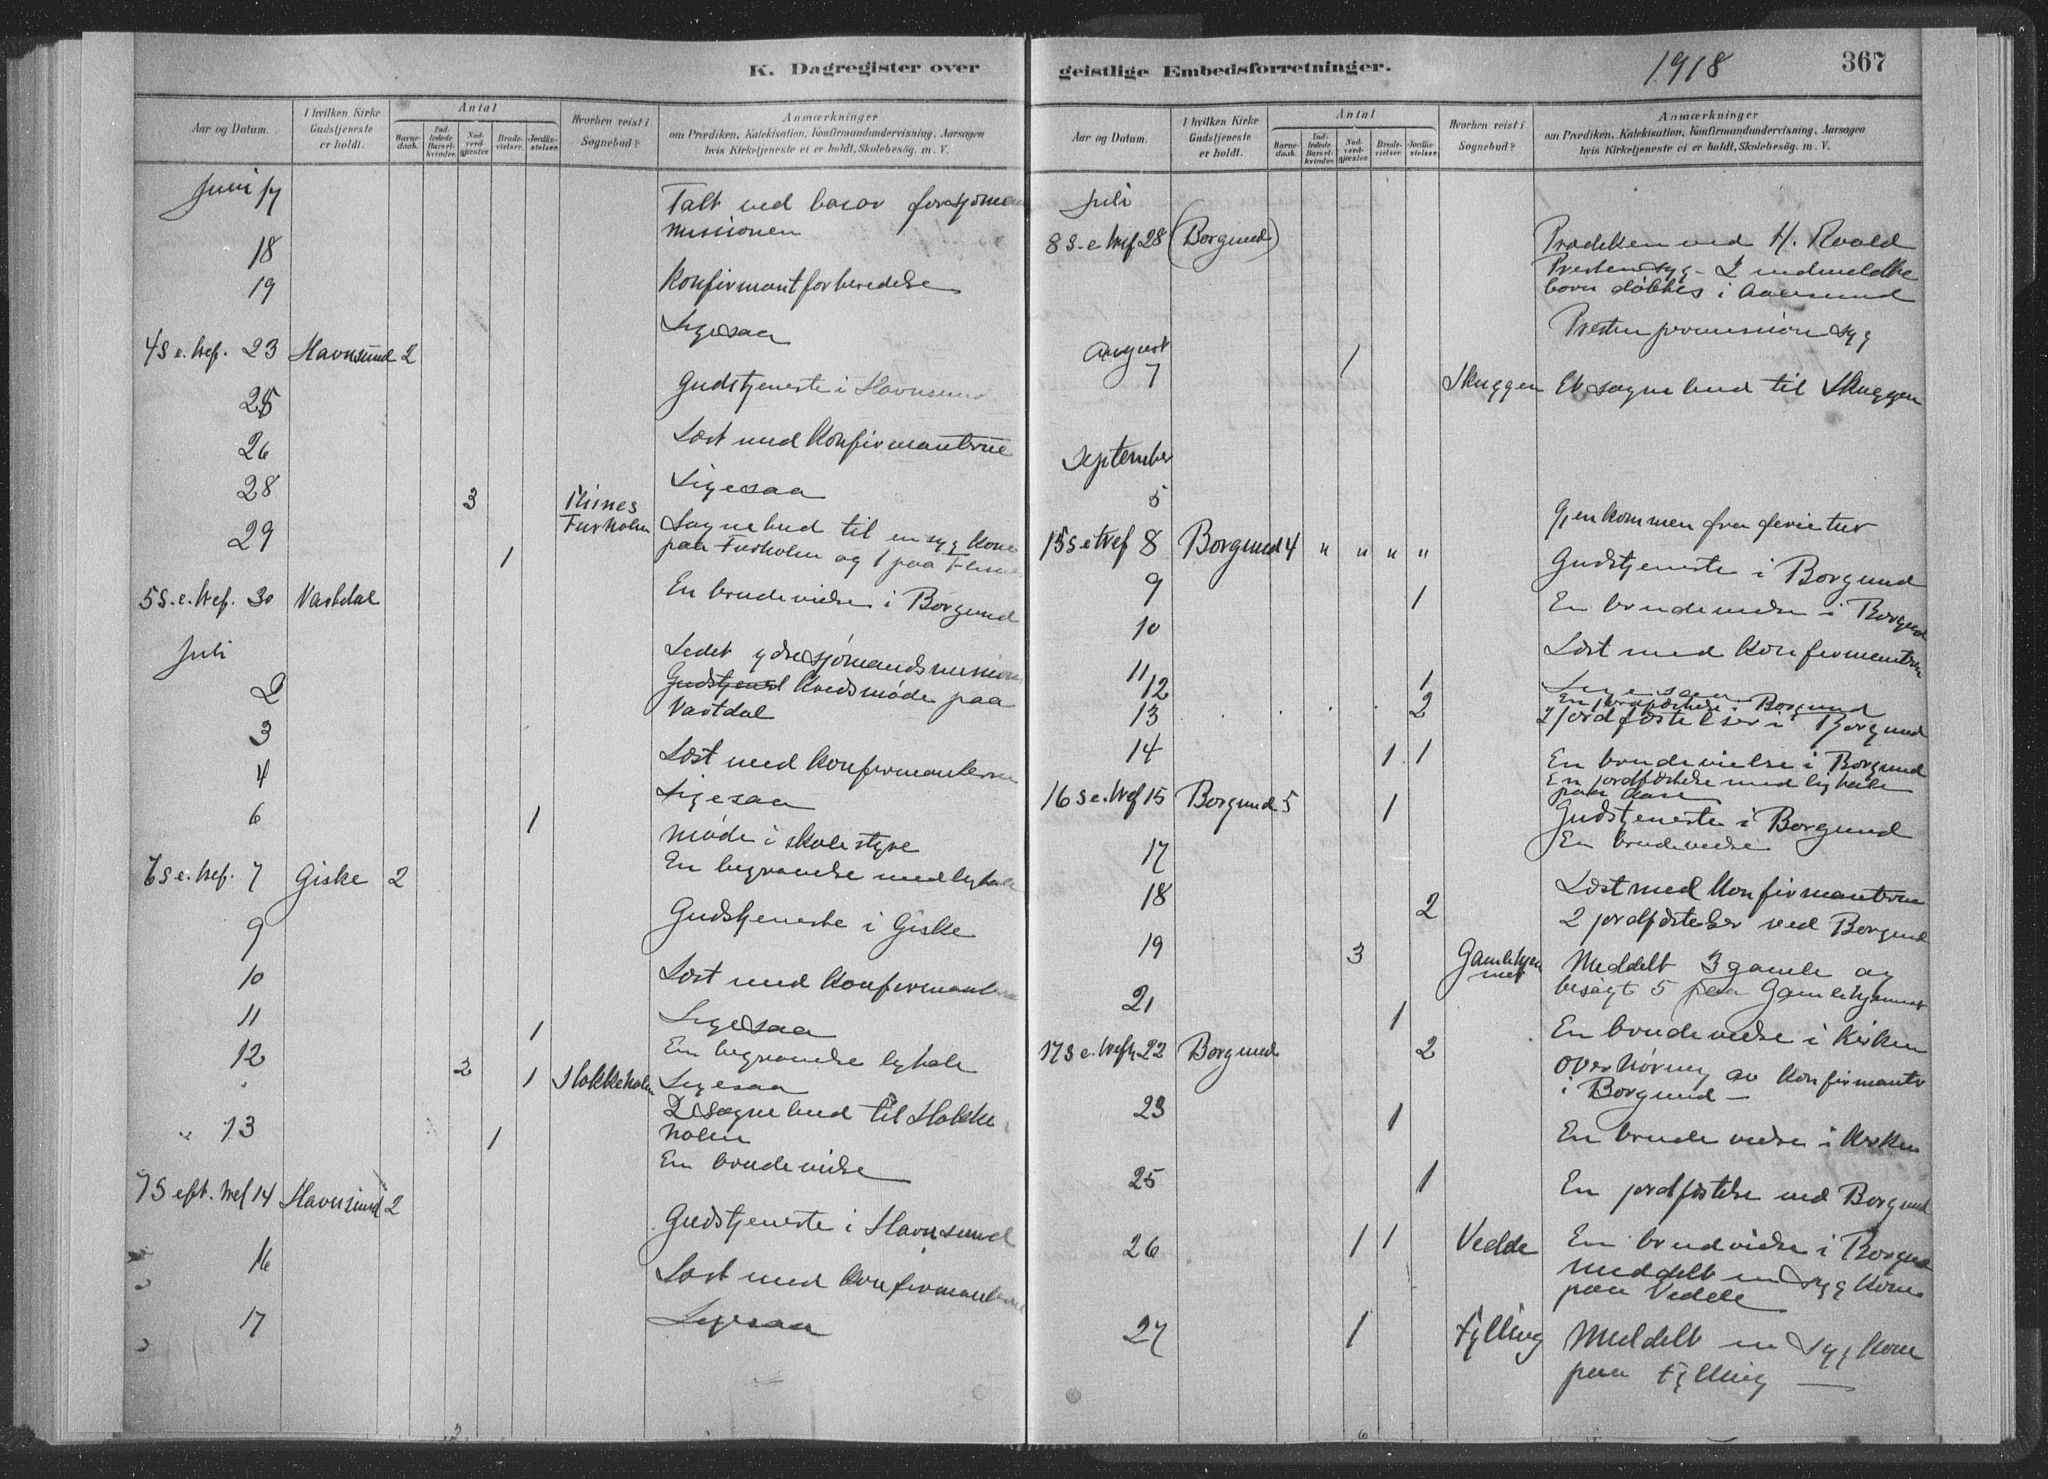 K. Dagregister over
Aar og Datum.
I hvilken Kirke Gudstjeneste er holdt.
Antal
Barne-daab.
Ind-ledede Barsel-kvinder.
Nad-verd-gjæster.
Brude-vielser.
Jordfæ-stelser.
Hvorhen reist i Sognebud?
Anmærkninger
om Prædiken, Katekisation, Konfirmandundervisning, Aarsagen
hvis Kirketjeneste ei er holdt, Skolebesøg. m. V.
Juni 17 Talt ved basar for sjømands
missionen
18
19 Konfirmantforberedelse
Ligesaa
4 S. e. tref. 23 Havnsund 2
Gudstjeneste i Havnsund
25
Læst med Konfirmanterne
26
Ligesaa
28 3 Flisnes
Furholm Sognebud til en syg Kone
paa Furholm og 1 paa Flisnes
29 1
En brudevielse i Borgund
5 S. e. tref. 30 Vartdal
Juli
Ledet ydre sjømandsmissions
Gudstjenest Kredsmøde paa
Vartdal
2
3
Læst med Konfirmanterne
4
Ligesaa
6 1
Møde i skolestyre
En begravelse med ligtale
6 S. e. tref. 7 Giske 2
Gudstjeneste i Giske
9
Læst med Konfirmanterne
10
Ligesaa
11 1
En begravelse ligtale
12 2 1 Slokkeholm Ligesaa
2 Sognebud til Slokke
holm
13 1
En brudevielse
7 S. eft. tref 14 Havnsund 2
Gudstjeneste i Havnsund
16
Læst med Konfirmanterne
17
Ligesaa
geistlige Embedsforretninger.
1918
367
Aar og Datum.
I hvilken Kirke Gudstjeneste er holdt.
Antal
Barne-daab.
Ind-ledede Barsel-kvinder.
Nad-verd-gjæster.
Brude-vielser.
Jordfæ-stelser.
Hvorhen reist i Sognebud?
Anmærkninger
om Prædiken, Katekisation, Konfirmandundervisning, Aarsagen
hvis Kirketjeneste ei er holdt, Skolebesøg. m. V.
Juli
8 S. e tref 28 (Borgund) Prædiken ved H. Roald
Presten syg - 2 indmeldte
børn døbtes i Aalesund
Presten syg
August
7 1 Skuggen Et sognebud til Skuggen
September
5
Gjenkommen fra ferietur
15 S e tref 8 Borgund 4 " " " "
Gudstjeneste i Borgund
9 1 En brudevielse i Borgund
10
Læst med Konfirmanterne
11
Ligesaa
12 1 En jordfæstelse i Borgund
13 2 2 jordfæstelser i Borgund
14 1 1 En brudevielse i Borgund
En jordfæstelse med ligtale
paa Aase
16 S e. tref 15 Borgund 5 1
Gudstjeneste i Borgund
En brudevielse
17
Læst med Konfirmanterne
18 2
2 jordfæstelser ved Borgund
19 3 Gamlehjem
met Meddelt 3 gamle og
besøgt 5 paa Gamlehjemmet
21 1
En brudevielse i Kirken
17 S e. tref. 22 Borgund 2
Overhøring av Konfirmanter
i Borgund -
23 1
En brudevielse i Kirken
25 1
En jordfæstelse ved Borgund
26 1 1 Vedde En brudevielse i Borgund
meddelt en syg Kone
paa Vedde
27 1 Fylling Meddelt en syg Kone
paa Fylling -